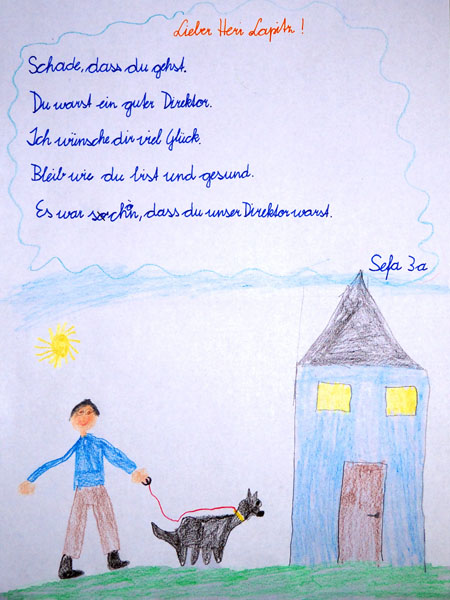 Lieber Herr Lapitz!
Schade, dass du gehst.
Du warst ein guter Direktor.
Ich wünsche dir viel Glück.
Bleib wie du bist und gesund.
Es war schön, dass du unser Direktor warst.
Sefa 3a